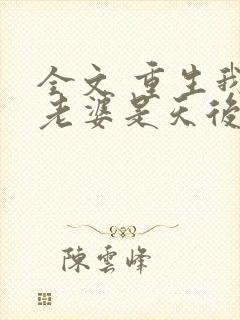 全文 重生我
老婆是天後
陳雲峰